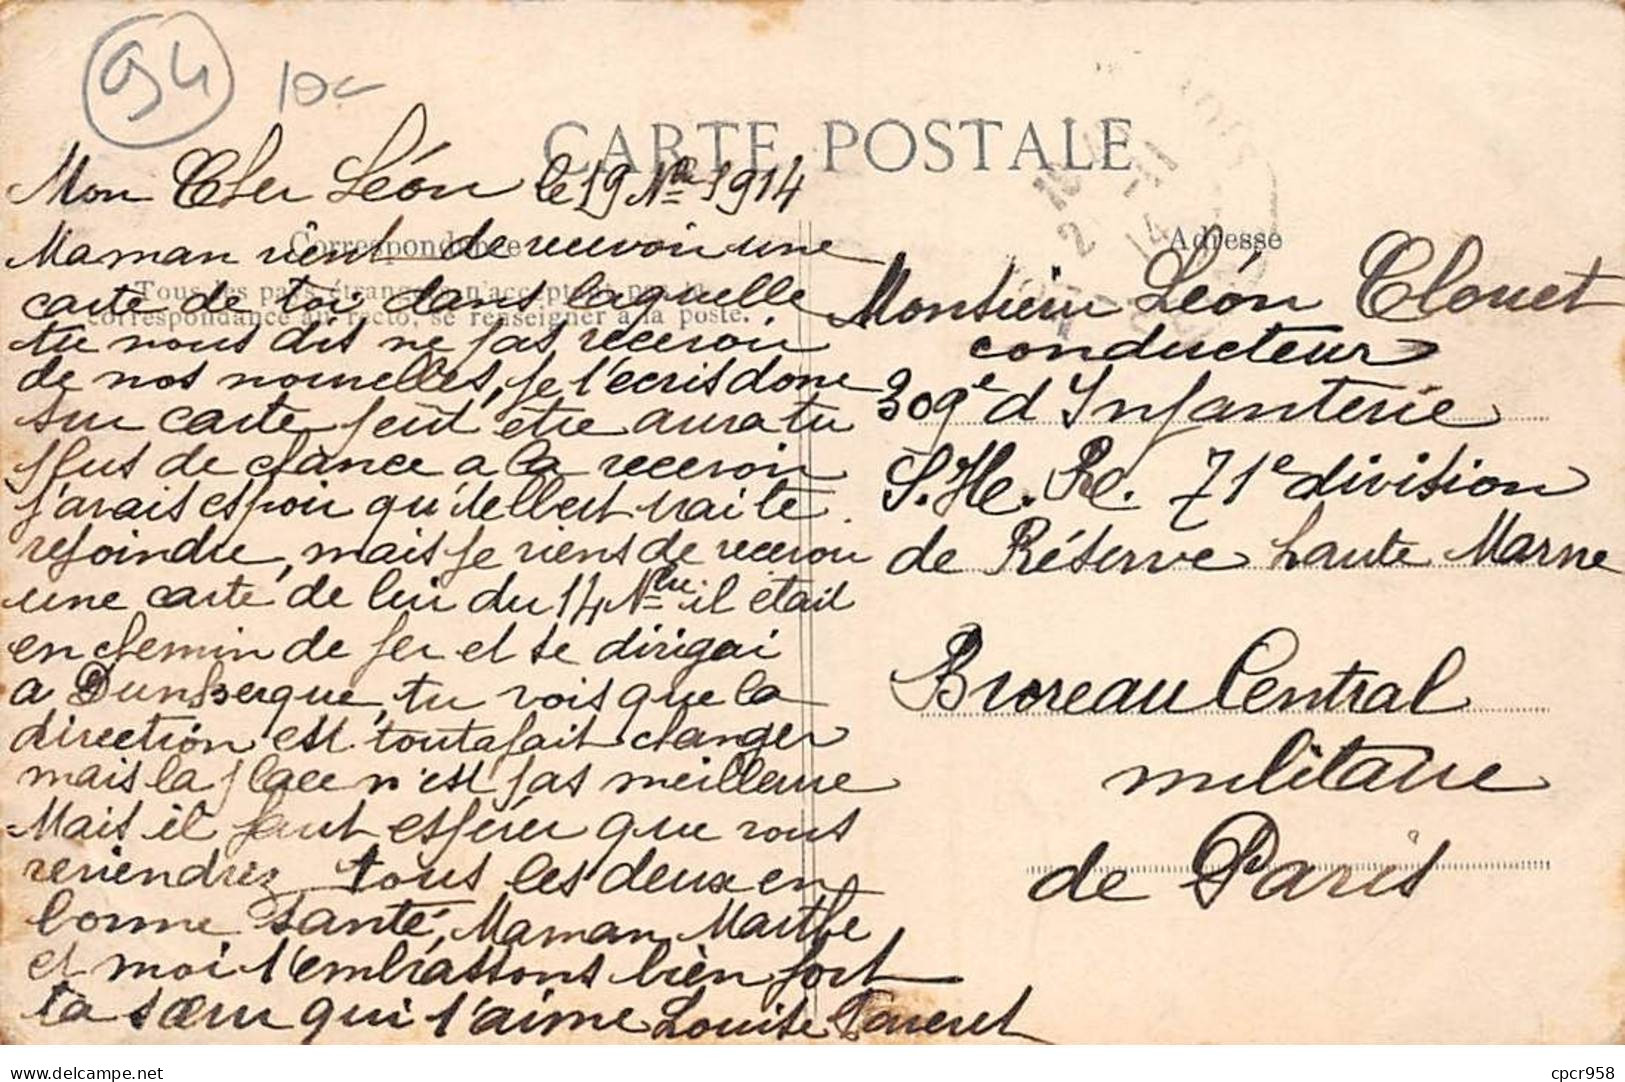 94 10c
CARTE POSTALE
Mon Cher Léon le 19 Nbre 1914
Correspondance
Maman vient de recevoir une
Tous les pays étrangers n'acceptent pas la
carte de toi dans laquelle
correspondance au recto, se renseigner à la poste.
tu nous dis ne pas recevoir
de nos nouvelles, je t'écris donc
sur carte peut être aura tu
plus de chance a la recevoir
j'avais espoir qu'Albert irai te
rejoindre, mais je viens de recevoir
une carte de lui du 14 Nbre il était
en chemin de fer et se dirigai
a Dunkerque, tu vois que la
direction est toutafait changer
mais la place n'est pas meilleure
Mais il faut espérer que vous
reviendrez tous les deux en
bonne santé, Maman Marthe
et moi t'embrassons bien fort
ta sœur qui t'aime Louise
Adresse
Monsieur Léon Clouet
conducteur
309e d'Infanterie
S.H.R. 71e division
de Réserve haute Marne
Bureau Central
militaire
de Paris
delcampe.net
cpcr958